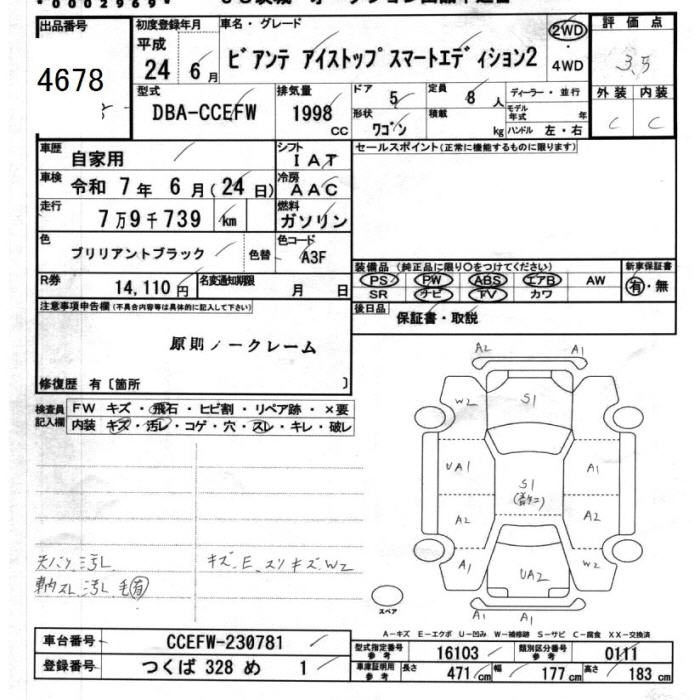 出品番号
4678
初度登録年月
平成
24 6 月
車名・グレード
ビアンテ アイストップスマートエディション2
2WD
4WD
評価点
3.5
外装 内装
C C
型式
DBA-CCEFW
排気量
1998 cc
ドア 5
定員 8 人
形状 ワゴン
積載 kg
ディーラー・並行
モデル年式 年
ハンドル 左・右
車歴 自家用
シフト IAT
セールスポイント(正常に機能するものに限ります)
車検 令和 7 年 6 月(24 日)
冷房 AAC
走行 7万9千739 km
燃料 ガソリン
色 ブリリアントブラック 色替
色コード A3F
装備品 (純正品に限り○をつけてください)
新車保証書
PS PW ABS エアB AW
有・無
SR ナビ TV カワ
R券 14,110 円
名変通知期限 月 日
後日品 保証書・取説
注意事項申告欄(不具合内容等は具体的に記入して下さい)
原則ノークレーム
修復歴 有〔箇所 〕
検査員記入欄
FW キズ・飛石・ヒビ割・リペア跡・×要
内装 キズ・汚レ・コゲ・穴・スレ・キレ・破レ
天バリ汚レ
キズ、E、スリキズ W2
車内スレ 汚レ 毛有
A2 A1
W2 S1
UA1 A1
S1
A2 A2
A1 W2
UA2
A1 A1
スペア
A-キズ E-エクボ U-凹み W-補修跡 S-サビ C-腐食 XX-交換済
車台番号 CCEFW-230781
型式指定番号 参考 16103
類別区分番号 参考 0111
登録番号 つくば 328 め 1
車庫証明用 参考 長さ 471 cm 幅 177 cm 高さ 183 cm